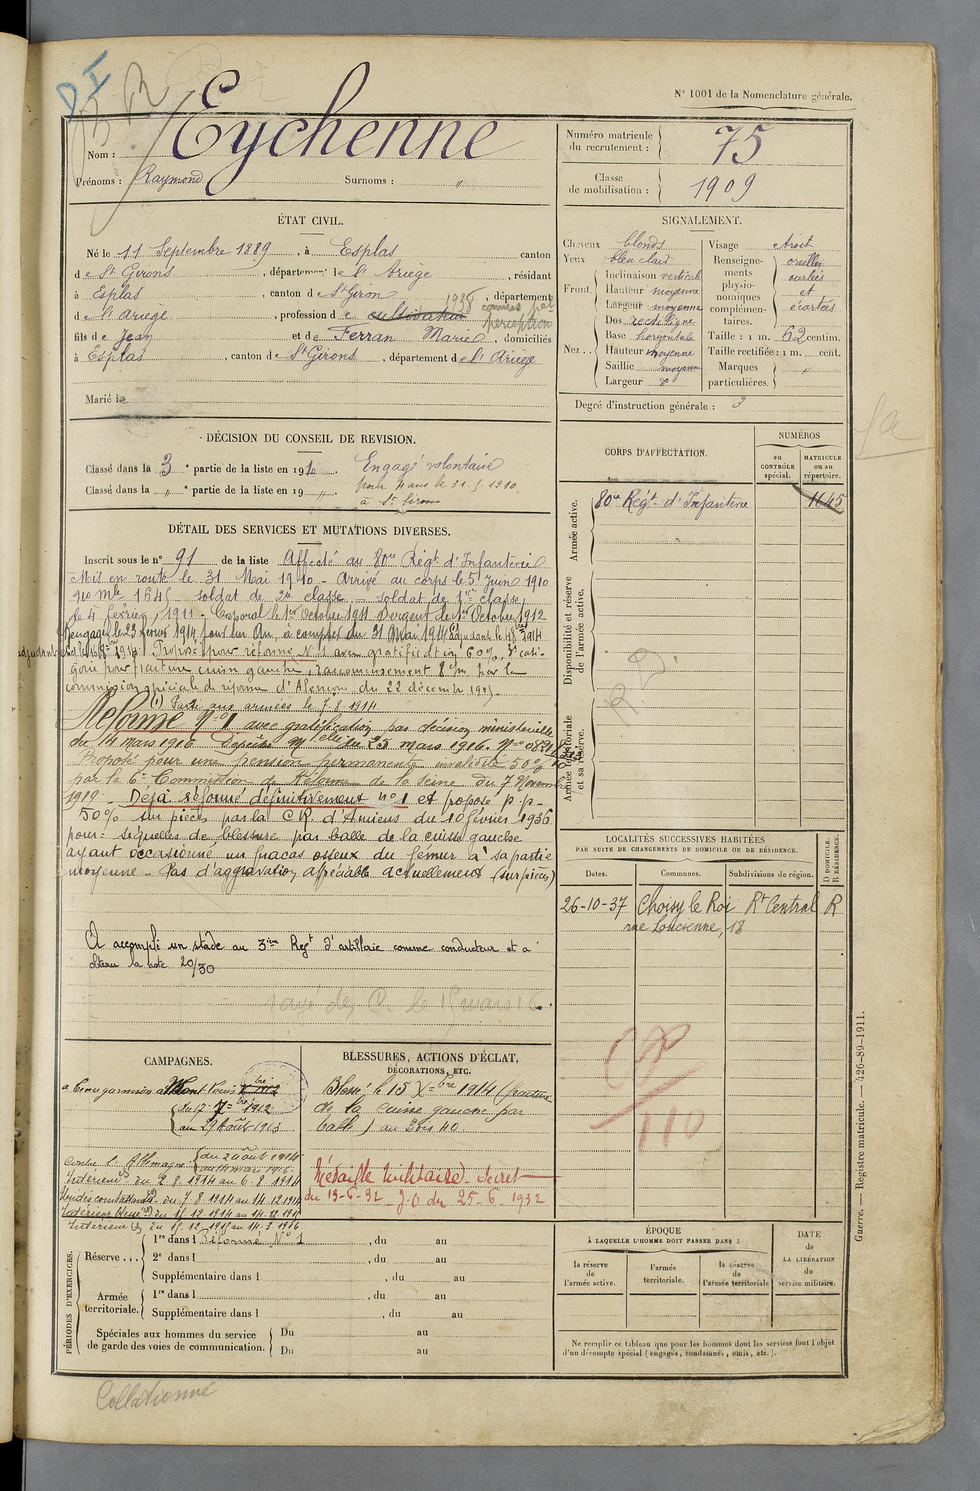 N° 1001 de la Nomenclature générale.
Nom : Eychenne
Prénoms : Raymond Surnoms : "
Numéro matricule du recrutement : 75
Classe de mobilisation : 1909
ÉTAT CIVIL.
Né le 11 Septembre 1889, à Esplas canton
de St Girons, département de l'Ariège, résidant
à Esplas, canton de St Giron, département
d l'Ariège, profession de cultivateur
1938 commis pal perception
fils de Jean et de Ferran Marie, domiciliés
à Esplas, canton de St Girons, département de l'Ariège
Marié le
SIGNALEMENT.
Cheveux blonds
Yeux bleu clair
Front. Inclinaison verticale
Hauteur moyenne
Largeur moyenne
Nez.. Dos rectiligne
Base horizontale
Hauteur moyenne
Saillie moyenne
Largeur do
Visage étroit
Renseignements physionomiques complémentaires. oreilles ourlées et écartées
Taille : 1 m. 62 centim.
Taille rectifiée : 1 m. cent.
Marques particulières. "
Degré d'instruction générale : 3
DÉCISION DU CONSEIL DE REVISION.
Classé dans la 3e partie de la liste en 1910. Engagé volontaire
Classé dans la " e partie de la liste en 19 ". pour 4 ans le 31.5.1910
à St Girons
DÉTAIL DES SERVICES ET MUTATIONS DIVERSES.
Inscrit sous le n° 91 de la liste Affecté au 80me Régt d'Infanterie
Mis en route le 31 Mai 1910 - Arrivé au corps le 5 Juin 1910
no mle 1645 soldat de 2e classe soldat de 1re classe,
le 4 février 1911 - Caporal le 1er Octobre 1911 Sergent le 1er Octobre 1912
Rengagé le 23 février 1914 pour un An, à compter du 31 Mai 1914 (1) adjudant le 1914
Proposé pour réforme N°1 avec gratification 60%, 5e caté-
gorie pour fracture cuisse gauche, raccourcissement 8 c/m par la
commission spéciale de réforme d'Alençon du 22 décembre 1915.
(1) Parti aux armées le 7.8.1914
Réformé N°1 avec gratification par décision ministérielle
du 14 mars 1916 Dépêche Mtelle du 25 mars 1916. N°
Proposé pour une pension permanente invalidité 50%
par la 6e Commission de Réforme de la Seine du 7 Novembre
1919. Déjà réformé définitivement n°1 et proposé p.p.
50% sur pièces par la C.R. d'Amiens du 10 février 1936
pour: séquelles de blessure par balle de la cuisse gauche
ayant occasionné un fracas osseux du fémur à sa partie
moyenne - Pas d'aggravation appréciable actuellement (sur pièces)
A accompli un stade au 3ième Regt d'artillerie comme conducteur et a
obtenu la note 20/30
rayé des C. le 15 mars 16
CORPS D'AFFECTATION.
NUMÉROS
au CONTRÔLE spécial.
MATRICULE ou au répertoire.
Armée active.
80me Régt d'Infanterie 1645
Disponibilité et réserve de l'armée active.
R.D.
Armée territoriale et sa réserve.
LOCALITÉS SUCCESSIVES HABITÉES
PAR SUITE DE CHANGEMENTS DE DOMICILE OU DE RÉSIDENCE.
Dates. Communes. Subdivisions de région. D DOMICILE. R RÉSIDENCE.
26-10-37 Choisy le Roi Rt Central R
18
CP
110
CAMPAGNES.
du 17 1912
au 29 Août 1913
Contre l'Allemagne du 2 août 1914
Intérieur du 2.8.1914 au 6.8.1914
du 7.8.1914 au 14.12.1914
Intérieur du 15.12.1914 au 14.12.1915
Intérieur du 15.12.1915 au 14.3.1916
BLESSURES, ACTIONS D'ÉCLAT,
DÉCORATIONS, ETC.
Blessé le 15 Xbre 1914 (fracture
de la cuisse gauche par
balle) au Bois 40.
Médaille Militaire Décret
du 13-6-32 J.O du 25-6-1932
PÉRIODES D'EXERCICES.
Réserve... 1re dans l Réformé N°1, du au
2e dans l, du au
Supplémentaire dans l, du au
Armée territoriale. 1re dans l, du au
Supplémentaire dans l, du au
Spéciales aux hommes du service de garde des voies de communication. Du au
Du au
ÉPOQUE
À LAQUELLE L'HOMME DOIT PASSER DANS :
la réserve de l'armée active.
l'armée territoriale.
la réserve de l'armée territoriale
DATE de LA LIBÉRATION du service militaire.
Ne remplir ce tableau que pour les hommes dont les services font l'objet
d'un décompte spécial (engagés, condamnés, omis, etc.).
Guerre. — Registre matricule. — 426-89-1911.
Collationné